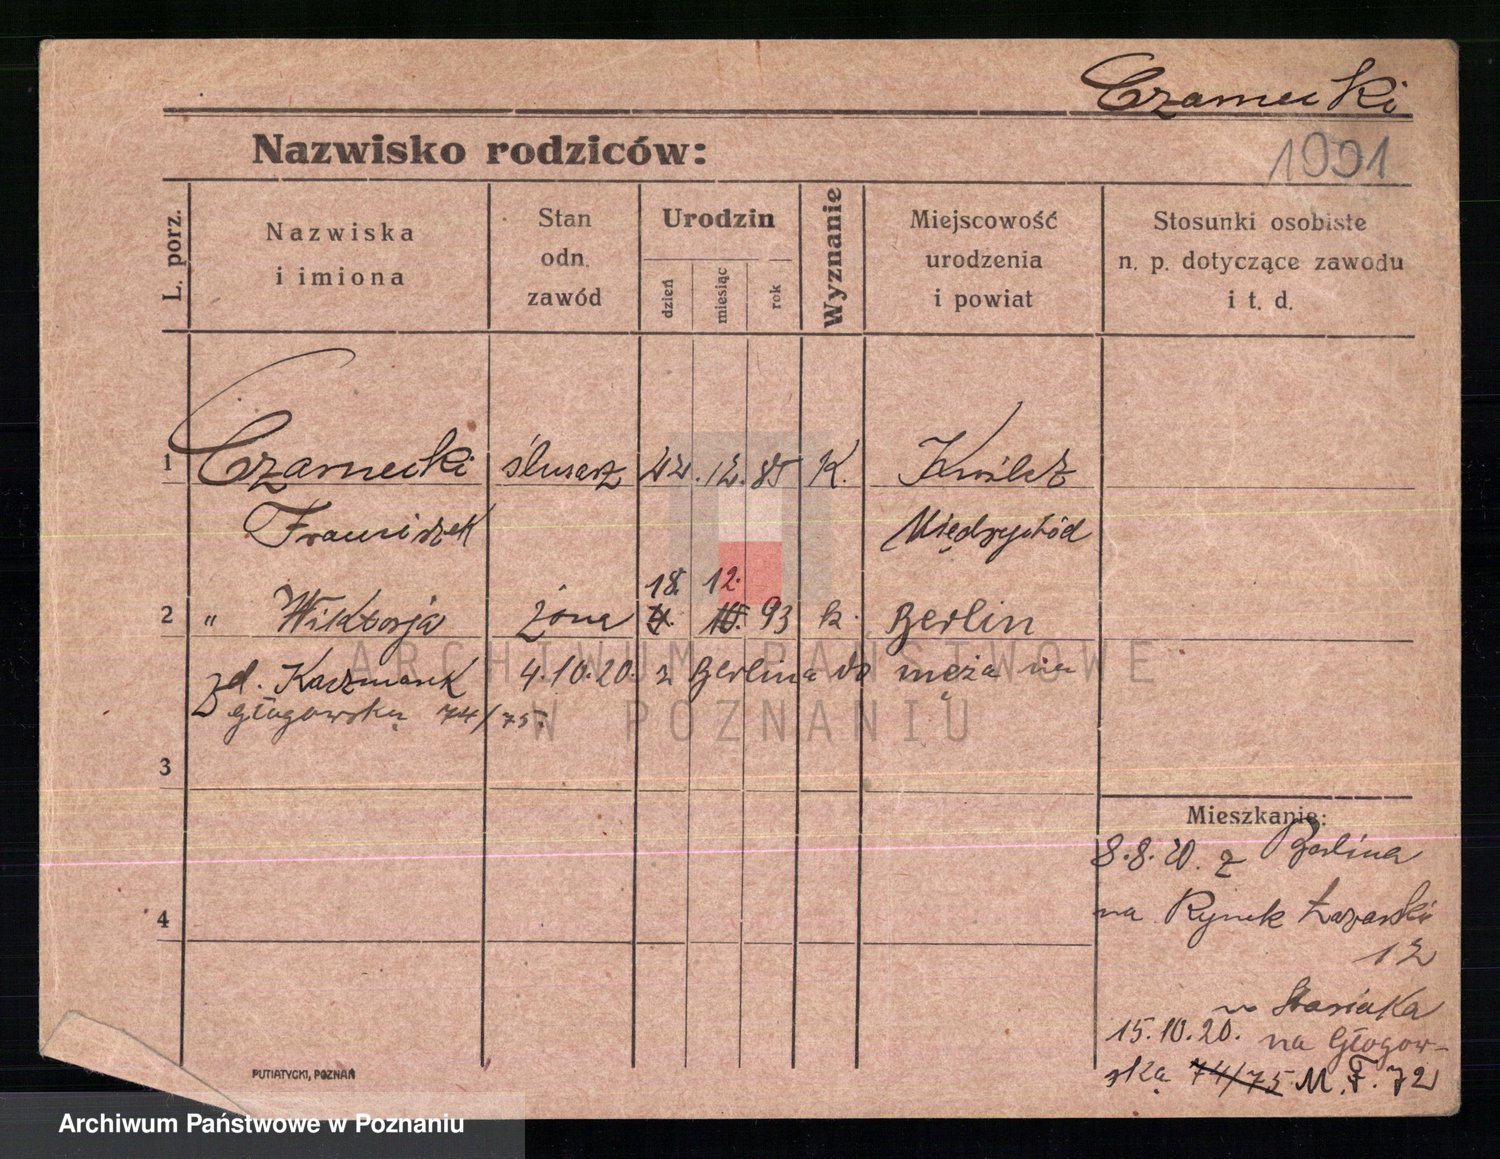 Czarnecki
Nazwisko rodziców:
1991
L. porz.
Nazwiska
i imiona
Stan
odn.
zawód
Urodzin
dzień
miesiąc
rok
Wyznanie
Miejscowość
urodzenia
i powiat
Stosunki osobiste
n. p. dotyczące zawodu
i t. d.
1 Czarnecki ślusarz 22. 12. 85 K.
Franciszek Międzychód
18. 12.
2 " Wiktorja żona 93 k. Berlin
zd. Kaczmarek 4.10.20. z Berlina do męża na
Głogowską 74/75.
3
Mieszkanie:
8.8.20. z Berlina
na Rynek Łazarski
12
u Stasiaka
15.10.20. na Głogow-
ską 74/75 M. F. 72
4
PUTIATYCKI, POZNAŃ
ARCHIWUM PAŃSTWOWE
W POZNANIU
Archiwum Państwowe w Poznaniu